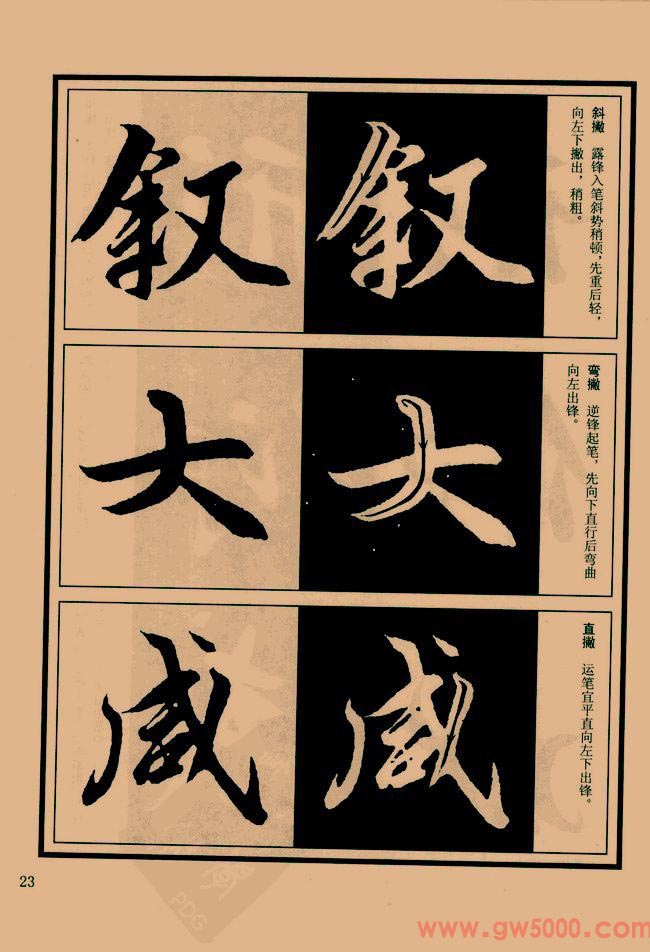 斜撇　露锋入笔斜势稍顿，先重后轻，
向左下撇出，稍粗。
叙
叙
弯撇　逆锋起笔，先向下直行后弯曲
向左出锋。
大
大
直撇　运笔宜平直向左下出锋。
咸
咸
23
PDG
www.gw5000.com